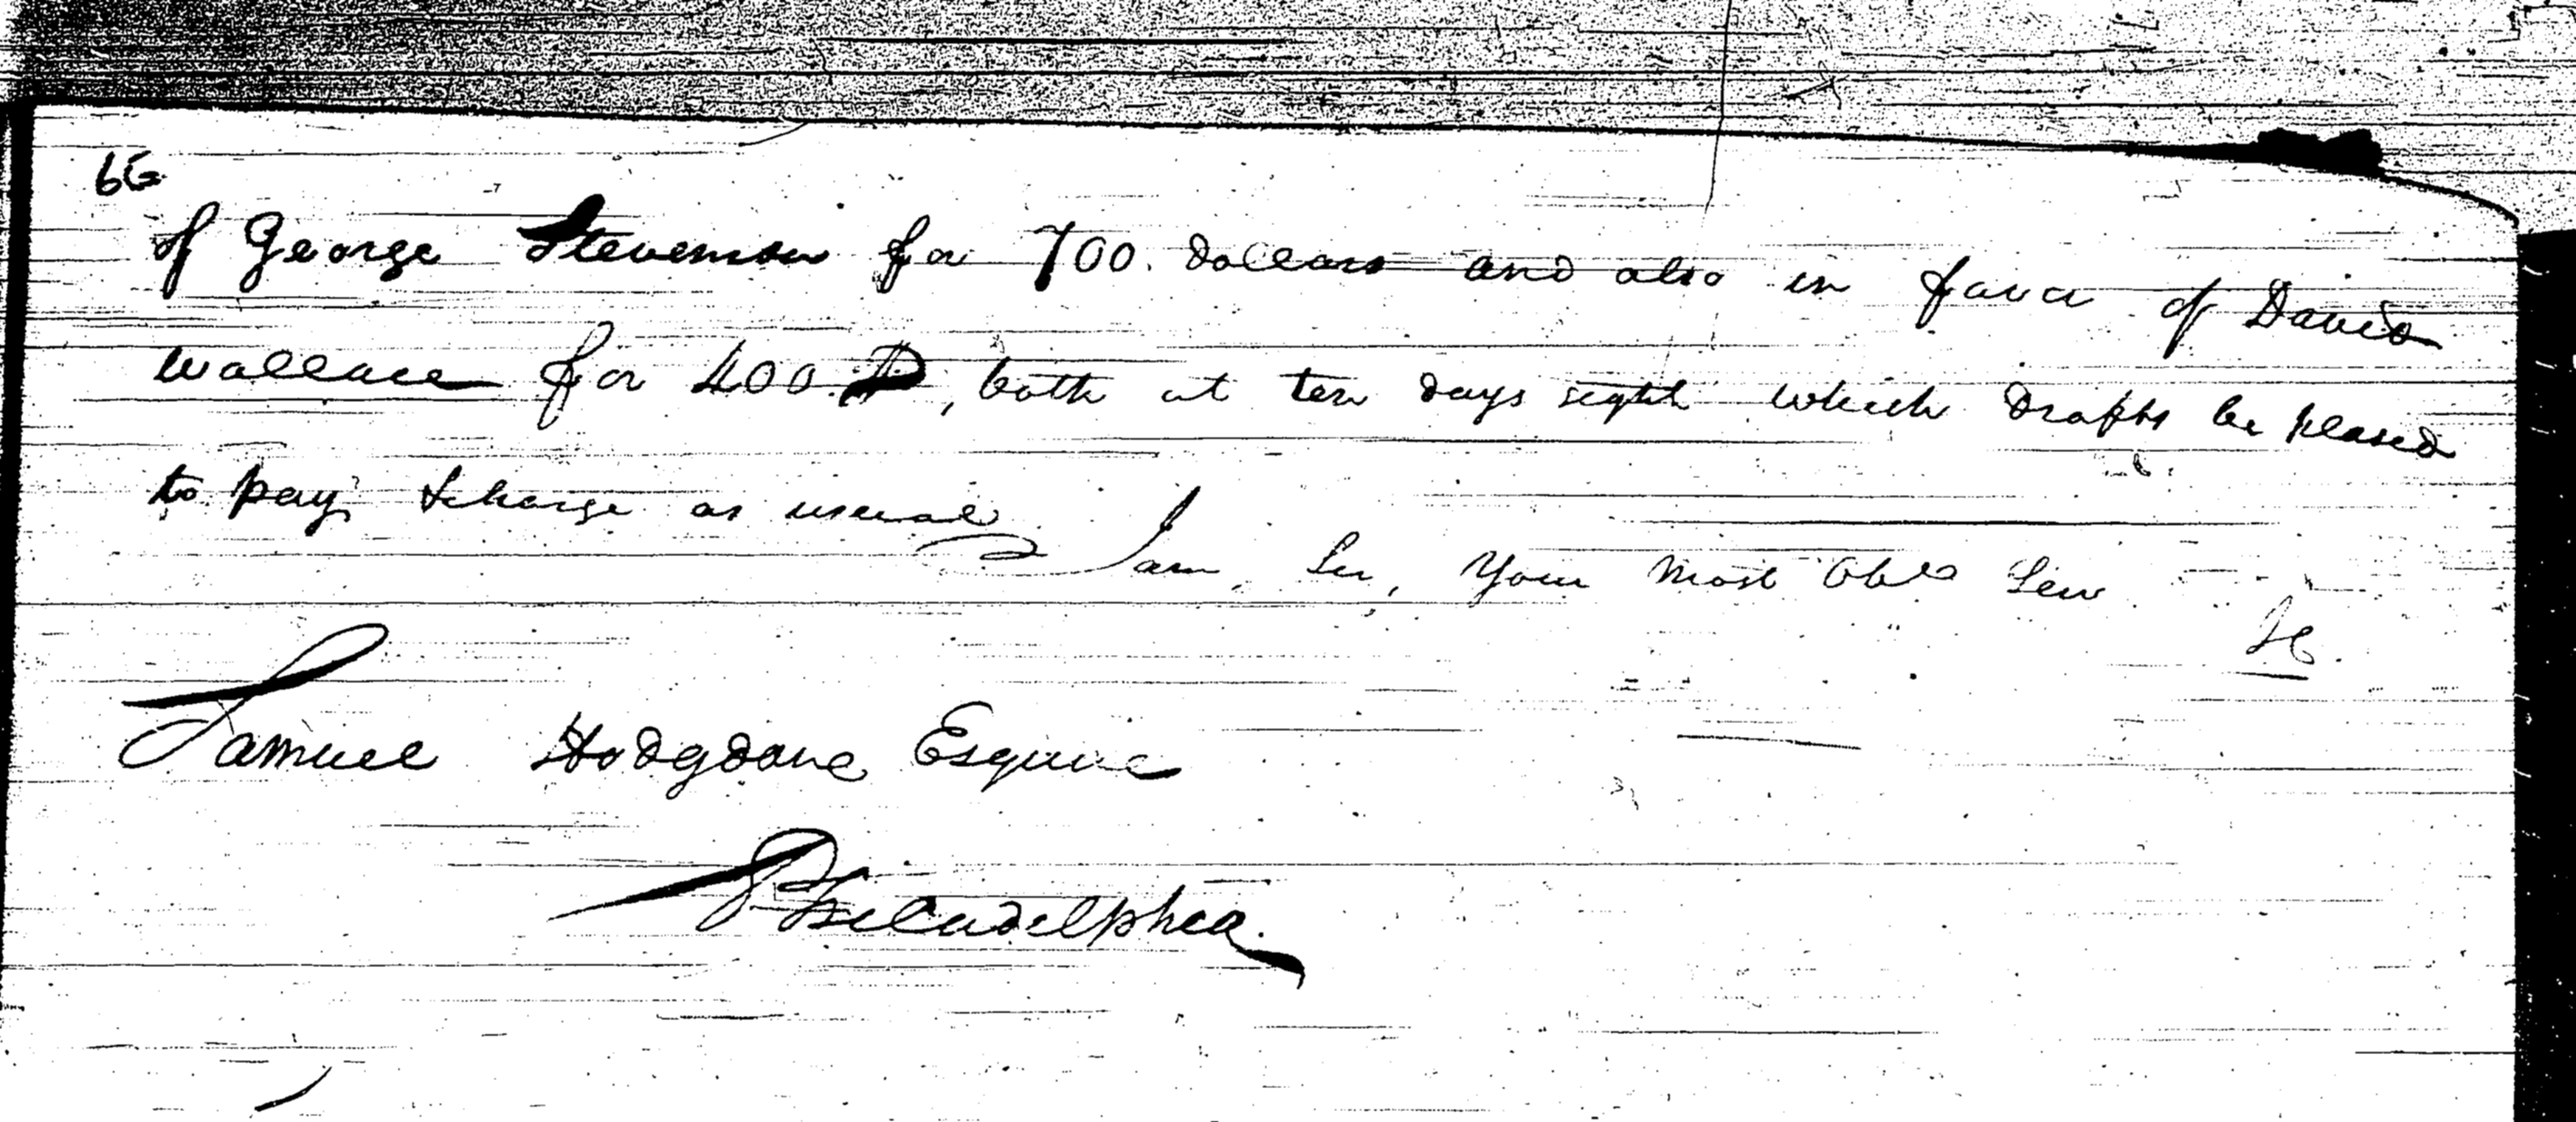 66
of George Stevenson for 700. dollars and also in favor of David
Wallace for 400. D, both at ten days sight which drafts be pleased
to pay & charge as usual
I am, Sir, Your most Obed Serv
Samuel Hodgdone Esquire
Philadelphia.